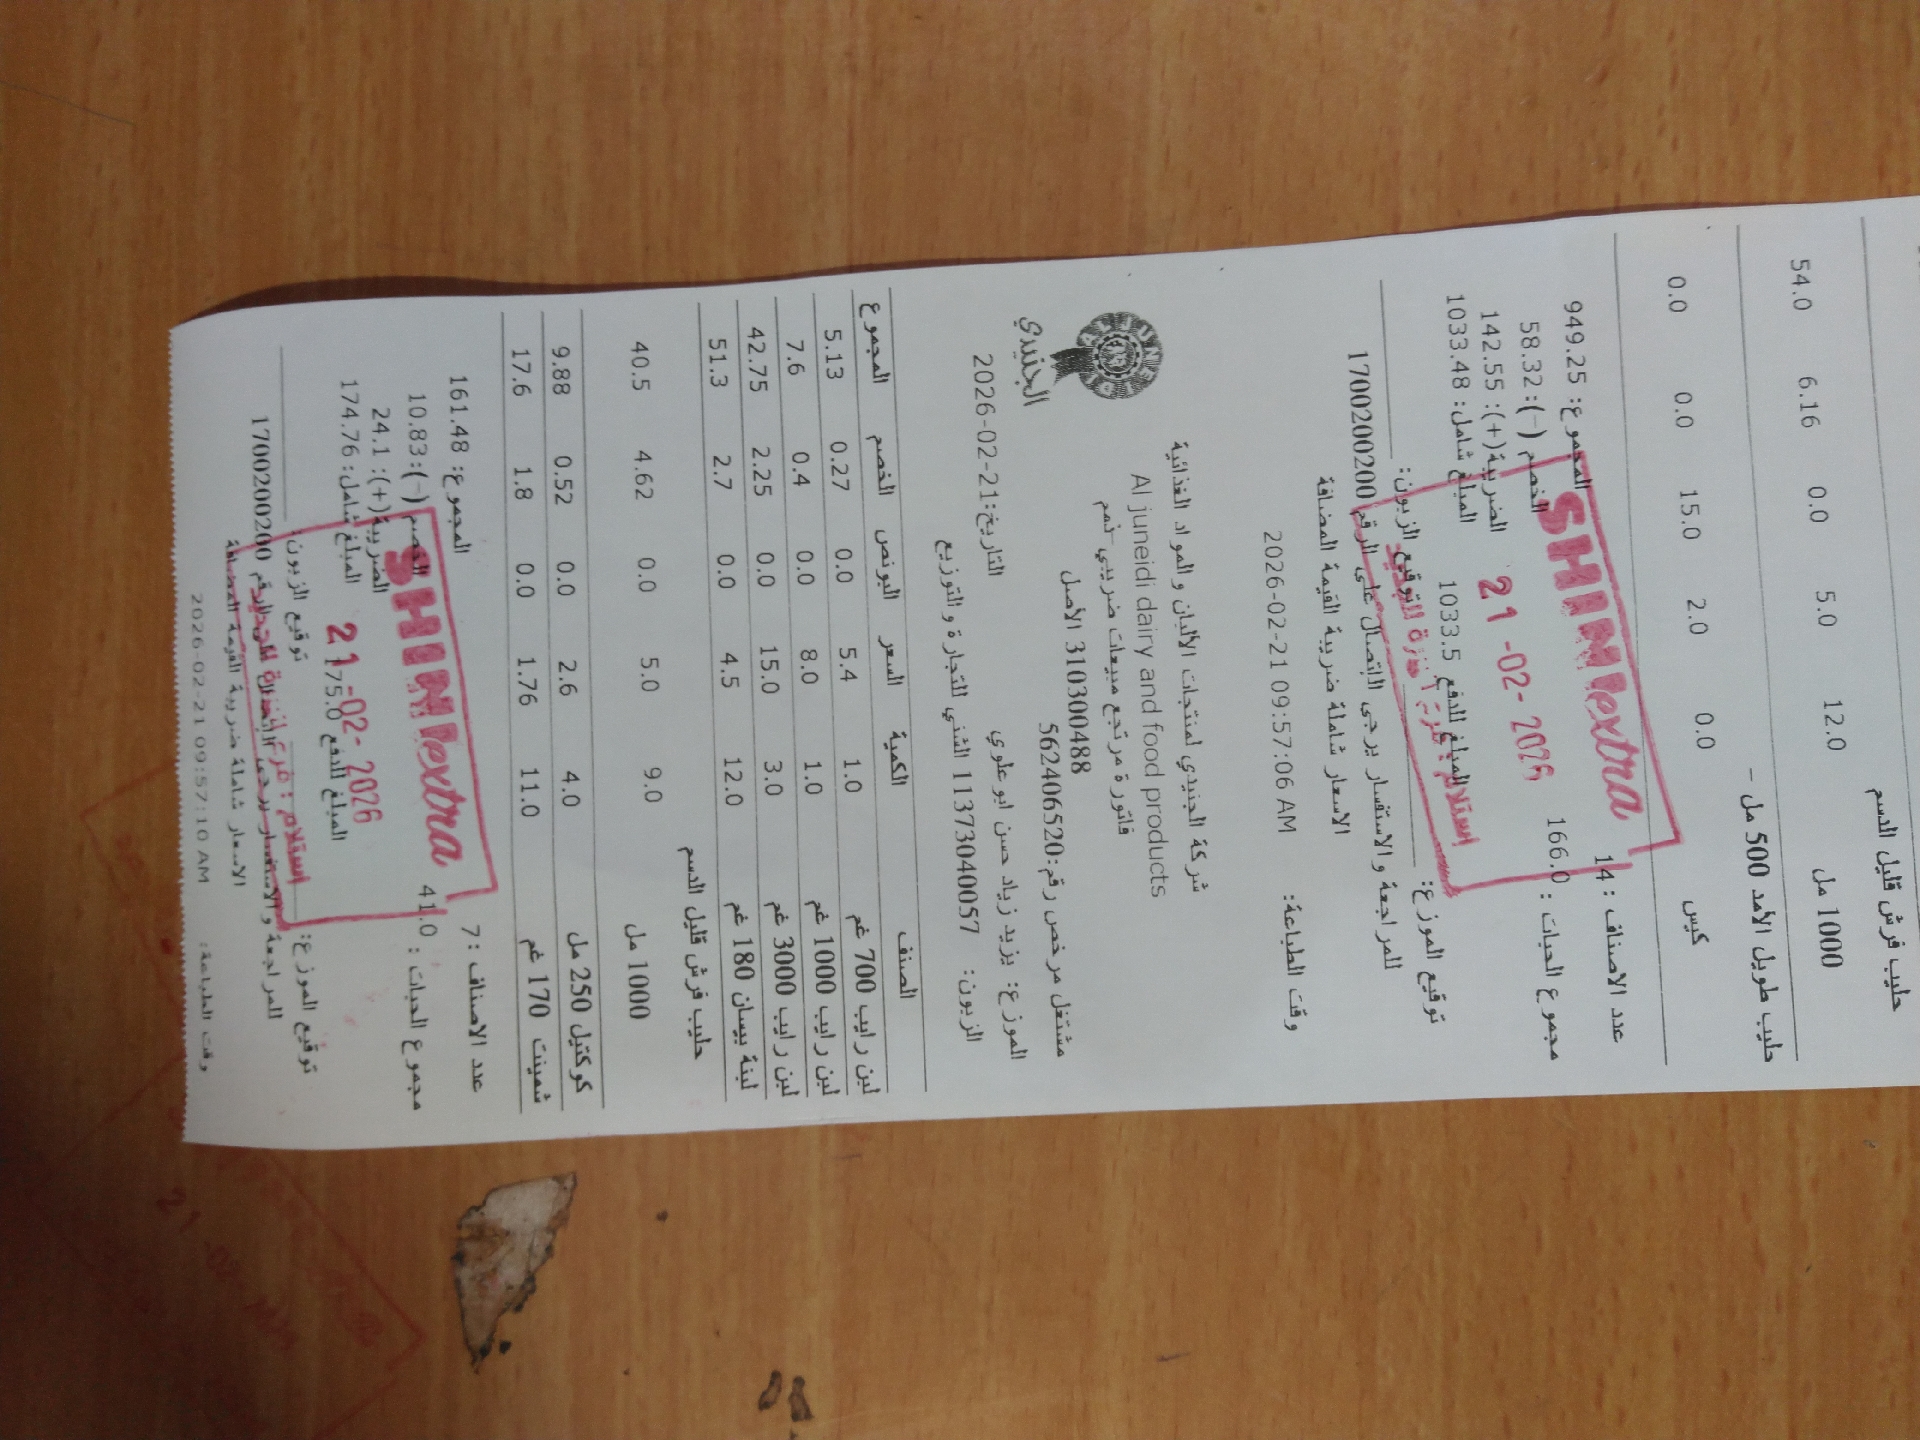 حليب فرش قليل الدسم
1000 مل 12.0 5.0 0.0 6.16 54.0
حليب طويل الأمد 500 مل –
كيس 0.0 2.0 15.0 0.0 0.0
عدد الاصناف : 14 المجموع: 949.25
مجموع الحبات : 166.0 الخصم (−): 58.32
الضريبة(+): 142.55
المبلغ شامل: 1033.48
المبلغ للدفع 1033.5
SHINI extra
21 -02- 2026
توقيع الموزع: توقيع الزبون:
للمراجعة والاستفسار يرجى الاتصال على الرقم 1700200200
الاسعار شاملة ضريبة القيمة المضافة
وقت الطباعة: 2026-02-21 09:57:06 AM
شركة الجنيدي لمنتجات الألبان والمواد الغذائية
Al juneidi dairy and food products
AL JUNEIDI
الجنيدي
فاتورة مرتجع مبيعات ضريبي -ذمم
310300488 الأصل
مشتغل مرخص رقم:562406520
الموزع: يزيد زياد حسن ابو علوي التاريخ:2026-02-21
الزبون: 1137304057 الشني للتجارة والتوزيع
الصنف الكمية السعر البونص الخصم المجموع
لبن رايب 700 غم 1.0 5.4 0.0 0.27 5.13
لبن رايب 1000 غم 1.0 8.0 0.0 0.4 7.6
لبن رايب 3000 غم 3.0 15.0 0.0 2.25 42.75
لبنة بيسان 180 غم 12.0 4.5 0.0 2.7 51.3
حليب فرش قليل الدسم
1000 مل 9.0 5.0 0.0 4.62 40.5
كوكتيل 250 مل 4.0 2.6 0.0 0.52 9.88
شمينت 170 غم 11.0 1.76 0.0 1.8 17.6
عدد الاصناف : 7 المجموع: 161.48
مجموع الحبات : 41.0 الخصم (−): 10.83
الضريبة(+): 24.1
المبلغ شامل: 174.76
المبلغ للدفع 175.0
SHINI extra
21 -02- 2026
توقيع الموزع: توقيع الزبون:
للمراجعة والاستفسار يرجى الاتصال على الرقم 1700200200
الاسعار شاملة ضريبة القيمة المضافة
وقت الطباعة: 2026-02-21 09:57:10 AM